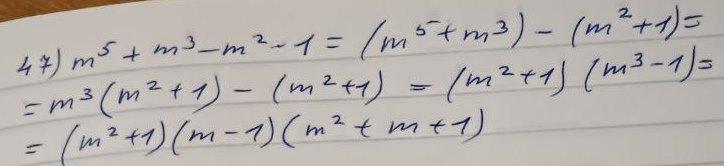 47) m⁵ + m³ - m² - 1 = (m⁵ + m³) - (m² + 1) =
= m³(m² + 1) - (m² + 1) = (m² + 1) (m³ - 1) =
= (m² + 1)(m - 1)(m² + m + 1)